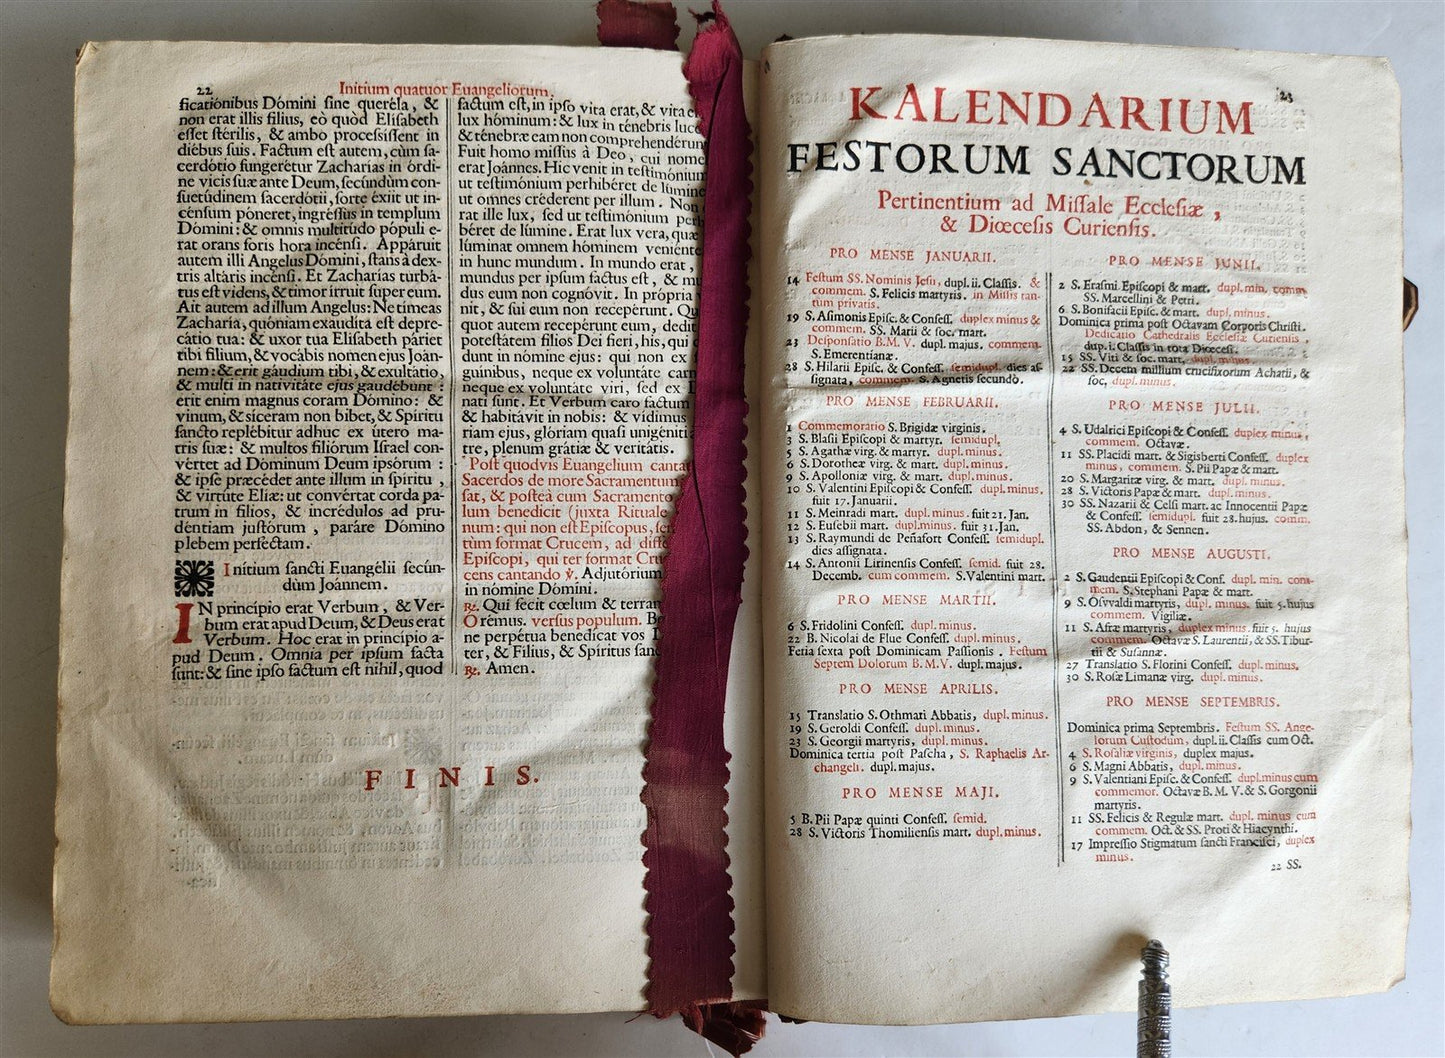 22
Initium quatuor Euangeliorum.
ficatiónibus Dómini sine queréla, &
non erat illis filius, eò quod Elísabeth
esset stérilis, & ambo processíssent in
diébus suis. Factum est autem, cùm sa-
cerdótio fungeretur Zacharías in órdi-
ne vicis suæ ante Deum, secúndùm con-
suetúdinem sacerdótii, sorte éxiit ut in-
cénsum póneret, ingréssus in templum
Dómini: & omnis multitúdo pópuli e-
rat orans foris hora incénsi. Appáruit
autem illi Angelus Dómini, stans à dex-
tris altáris incénsi. Et Zacharías turbá-
tus est videns, & timor írruit super eum.
Ait autem ad illum Angelus: Ne tímeas
Zacharía, quóniam exaudíta est depre-
cátio tua: & uxor tua Elísabeth páriet
tibi fílium, & vocábis nomen ejus Joán-
nem: & erit gáudium tibi, & exultátio,
& multi in nativitáte ejus gaudébunt:
erit enim magnus coram Dómino: &
vinum, & síceram non bibet, & Spíritu
sancto replébitur adhuc ex útero ma-
tris suæ: & multos filiórum Israel con-
vértet ad Dóminum Deum ipsórum:
& ipse præcédet ante illum in spíritu,
& virtúte Elíæ: ut convértat corda pa-
trum in fílios, & incrédulos ad pru-
déntiam justórum, paráre Dómino
plebem perféctam.
Inítium sancti Euangélii secún-
dùm Joánnem.
IN princípio erat Verbum, & Ver-
bum erat apud Deum, & Deus erat
Verbum. Hoc erat in princípio a-
pud Deum. Omnia per ipsum facta
sunt: & sine ipso factum est nihil, quod
factum est, in ipso vita erat, & vita er
lux hóminum: & lux in ténebris luce
& ténebræ eam non comprehendérun
Fuit homo missus à Deo, cui nome
erat Joánnes. Hic venit in testimónium
ut testimónium perhibéret de lúmine
ut omnes créderent per illum. Non
rat ille lux, sed ut testimónium perh
béret de lúmine. Erat lux vera, quæ
lúminat omnem hóminem veniénte
in hunc mundum. In mundo erat,
mundus per ipsum factus est, & mu
dus eum non cognóvit. In própria v
nit, & sui eum non recepérunt. Qu
quot autem recepérunt eum, dedit
potestátem fílios Dei fíeri, his, qui c
dunt in nómine ejus: qui non ex
guínibus, neque ex voluntáte carn
neque ex voluntáte viri, sed ex D
nati sunt. Et Verbum caro factum
& habitávit in nobis: & vídimus
riam ejus, glóriam quasi unigéniti
tre, plenum grátiæ & veritátis.
Post quodvis Euangelium canta
Sacerdos de more Sacramentum
sat, & posteà cum Sacramento
lum benedicit (juxta Rituale
num: qui non est Episcopus, se
tùm format Crucem, ad diffe
Episcopi, qui ter format Cru
cens cantando ℣. Adjutórium
in nómine Dómini.
℟. Qui fecit cœlum & terram
Orémus. versus populum. Be
ne perpétua benedícat vos
ter, & Fílius, & Spíritus san
℟. Amen.
FINIS.
23
KALENDARIUM
FESTORUM SANCTORUM
Pertinentium ad Missale Ecclesiæ,
& Diœcesis Curiensis.
PRO MENSE JANUARII.
14 Festum SS. Nominis Jesu, dupl. ii. Classis. &
commem. S. Felicis martyris. in Missis tan-
tùm privatis.
19 S. Asimonis Episc. & Confess. duplex minus &
commem. SS. Marii & soc. mart.
23 Desponsatio B. M. V. dupl. majus. commem.
S. Emerentianæ.
28 S. Hilarii Episc. & Confess. semidupl. dies as-
signata, commem. S. Agnetis secundò.
PRO MENSE FEBRUARII.
1 Commemoratio S. Brigidæ virginis.
3 S. Blasii Episcopi & martyr. semidupl.
5 S. Agathæ virg. & martyr. dupl. minus.
6 S. Dorotheæ virg. & mart. dupl. minus.
9 S. Apolloniæ virg. & mart. dupl. minus.
10 S. Valentini Episcopi & Confess. dupl. minus.
fuit 17. Januarii.
11 S. Meinradi mart. dupl. minus. fuit 21. Jan.
12 S. Eusebii mart. dupl. minus. fuit 31. Jan.
13 S. Raymundi de Peñafort Confess. semidupl.
dies assignata.
14 S. Antonii Lirinensis Confess. semid. fuit 28.
Decemb. cum commem. S. Valentini mart.
PRO MENSE MARTII.
6 S. Fridolini Confess. dupl. minus.
22 B. Nicolai de Flue Confess. dupl. minus.
Feria sexta post Dominicam Passionis. Festum
Septem Dolorum B. M. V. dupl. majus.
PRO MENSE APRILIS.
15 Translatio S. Othmari Abbatis, dupl. minus.
19 S. Geroldi Confess. dupl. minus.
23 S. Georgii martyris, dupl. minus.
Dominica tertia post Pascha, S. Raphaelis Ar-
changeli. dupl. majus.
PRO MENSE MAJI.
5 B. Pii Papæ quinti Confess. semid.
28 S. Victoris Thomiliensis mart. dupl. minus.
PRO MENSE JUNII.
2 S. Erasmi Episcopi & mart. dupl. min. comm.
SS. Marcellini & Petri.
6 S. Bonifacii Episc. & mart. dupl. minus.
Dominica prima post Octavam Corporis Christi.
Dedicatio Cathedralis Ecclesiæ Curiensis,
dup. i. Classis in tota Diœcesi.
15 SS. Viti & soc. mart. dupl. minus.
22 SS. Decem millium crucifixorum Achatii, &
soc, dupl. minus.
PRO MENSE JULII.
4 S. Udalrici Episcopi & Confess. duplex minus,
commem. Octavæ.
11 SS. Placidi mart. & Sigisberti Confess. duplex
minus, commem. S. Pii Papæ & mart.
20 S. Margaritæ virg. & mart. dupl. minus.
28 S. Victoris Papæ & mart. dupl. minus.
30 SS. Nazarii & Celsi mart. ac Innocentii Papæ
& Confess. semidupl. fuit 28. hujus. comm.
SS. Abdon, & Sennen.
PRO MENSE AUGUSTI.
2 S. Gaudentii Episcopi & Conf. dupl. min. com-
mem. S. Stephani Papæ & mart.
9 S. Osvvaldi martyris, dupl. minus. fuit 5. hujus
commem. Vigiliæ.
11 S. Afræ martyris, duplex minus. fuit 5. hujus
commem. Octavæ S. Laurentii, & SS. Tibur-
tii & Susannæ.
27 Translatio S. Florini Confess. dupl. minus.
30 S. Rosæ Limanæ virg. dupl. minus.
PRO MENSE SEPTEMBRIS.
Dominica prima Septembris. Festum SS. Ange-
lorum Custodum, dupl. ii. Classis cum Oct.
4 S. Rosaliæ virginis, duplex majus.
6 S. Magni Abbatis, dupl. minus.
9 S. Valentiani Episc. & Confess. dupl. minus cum
commemor. Octavæ B. M. V. & S. Gorgonii
martyris.
11 SS. Felicis & Regulæ mart. dupl. minus cum
commem. Oct. & SS. Proti & Hiacynthi.
17 Impressio Stigmatum sancti Francisci, duplex
minus.
22 SS.